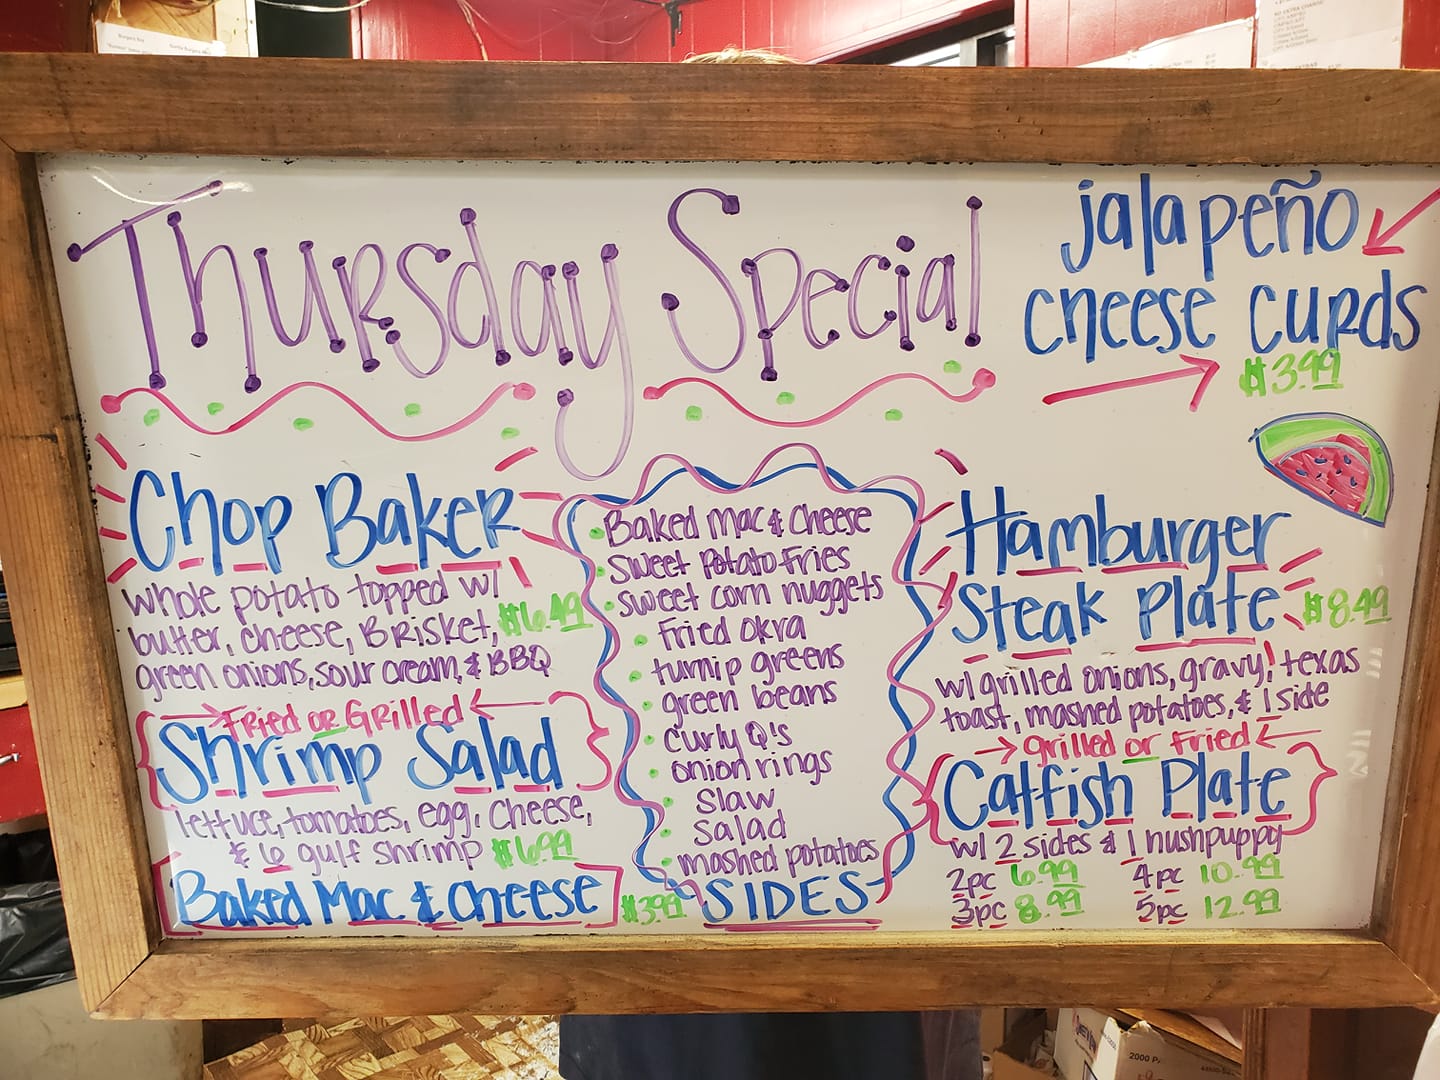 Thursday Special
jalapeño
cheese curds
$3.99
Chop Baker
whole potato topped w/
butter, cheese, Brisket, $6.49
green onions, sour cream, & BBQ
Fried or Grilled
Shrimp Salad
lettuce, tomatoes, egg, cheese,
& 6 gulf shrimp $6.99
Baked Mac & Cheese $3.99
Baked Mac & Cheese
Sweet Potato Fries
sweet corn nuggets
Fried Okra
turnip greens
green beans
curly Q's
onion rings
Slaw
Salad
mashed potatoes
SIDES
Hamburger
Steak Plate $8.49
w/ grilled onions, gravy, texas
toast, mashed potatoes, & 1 side
grilled or Fried
Catfish Plate
w/ 2 sides & 1 hushpuppy
2pc 6.99 4pc 10.99
3pc 8.99 5pc 12.99